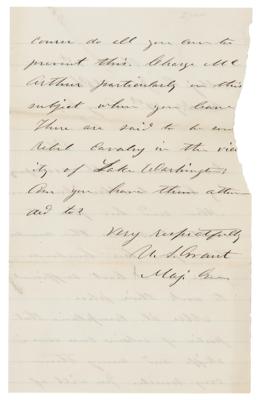 course do all you can to
prevent this. Charge Mc
Arthur particularly on this
subject when you leave
There are said to be some
Rebel Cavalry in the vicin
ity of Lake Washington
Can you have them atten
ded to?
Very respectfully
U. S. Grant
Maj. Gen